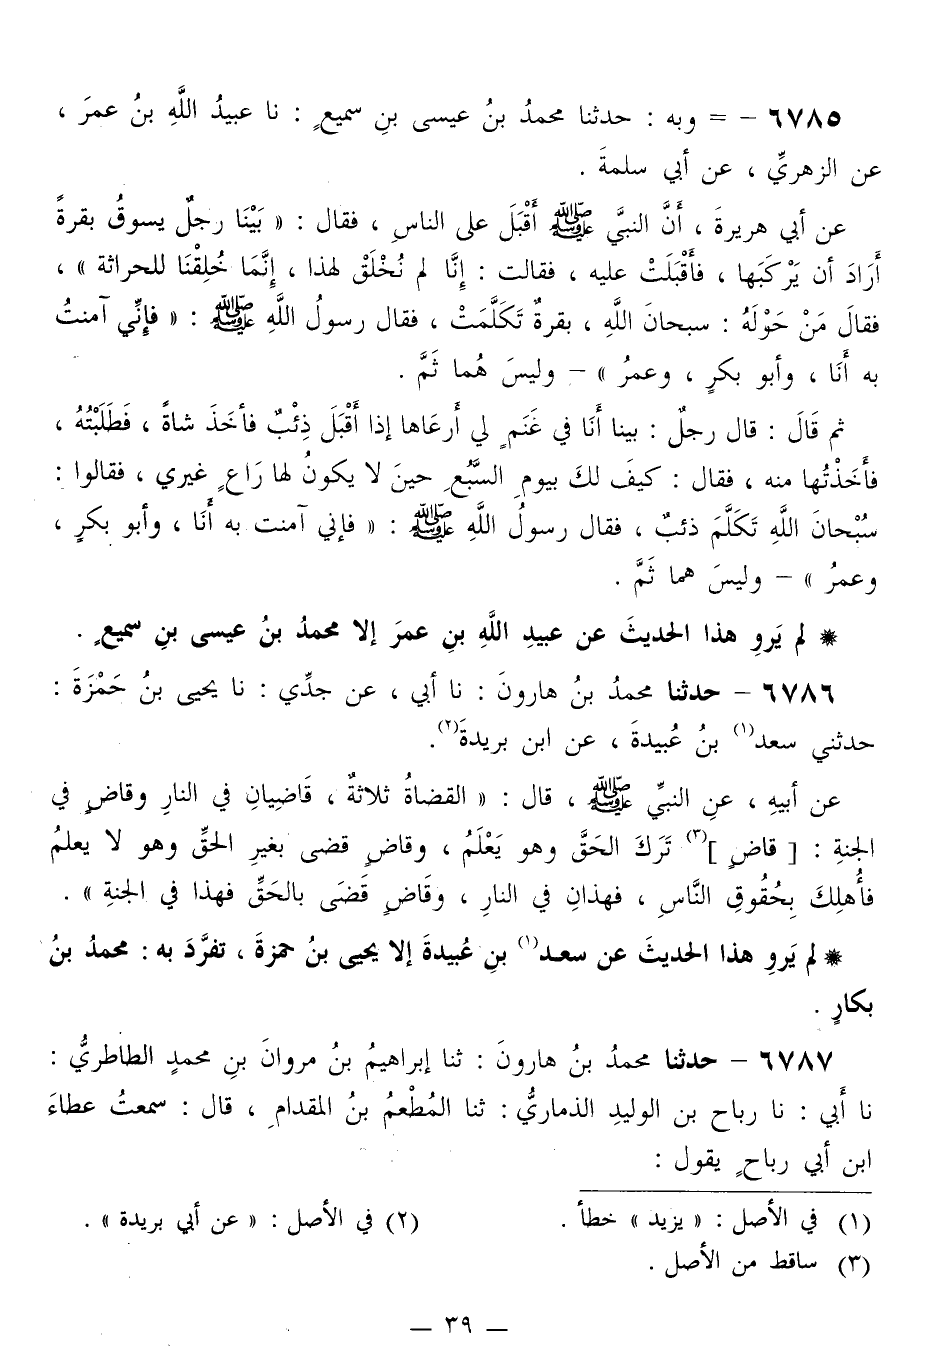 ٦٧٨٥ – = وبه : حدثنا محمدُ بنُ عيسى بنِ سميعٍ : نا عبيدُ اللَّهِ بنُ عمرَ ،
عن الزهريِّ ، عن أبي سلمةَ .
عن أبي هريرةَ ، أَنَّ النبيَّ ﷺ أَقْبَلَ على الناسِ ، فقال : « بَيْنَا رجلٌ يسوقُ بقرةً
أَرَادَ أن يَرْكَبَها ، فأَقْبَلَتْ عليه ، فقالت : إِنَّا لم نُخْلَقْ لهذا ، إِنَّمَا خُلِقْنَا للحراثة » ،
فقالَ مَنْ حَوْلَهُ : سبحانَ اللَّهِ ، بقرةٌ تَكَلَّمَتْ ، فقال رسولُ اللَّهِ ﷺ : « فإنِّي آمنتُ
به أَنَا ، وأبو بكرٍ ، وعمرُ » – وليسَ هُما ثَمَّ .
ثم قَالَ : قال رجلٌ : بينا أَنَا في غَنَمٍ لي أَرعَاها إذا أَقْبَلَ ذِئْبٌ فأخَذَ شاةً ، فَطَلَبْتُهُ ،
فأَخَذْتُها منه ، فقال : كيفَ لكَ بيومِ السَّبُعِ حينَ لا يكونُ لها رَاعٍ غيري ، فقالوا :
سُبْحانَ اللَّهِ تَكَلَّمَ ذئبٌ ، فقال رسولُ اللَّهِ ﷺ : « فإني آمنت به أَنَا ، وأبو بكرٍ ،
وعمرُ » – وليسَ هما ثَمَّ .
* لم يَروِ هذا الحديثَ عن عبيدِ اللَّهِ بنِ عمرَ إلا محمدُ بنُ عيسى بنِ سميعٍ .
٦٧٨٦ – حدثنا محمدُ بنُ هارونَ : نا أبي ، عن جدِّي : نا يحيى بنُ حَمْزَةَ :
حدثني سعد(١) بنُ عُبيدةَ ، عن ابن بريدةَ(٢).
عن أبيهِ ، عنِ النبيِّ ﷺ ، قال : « القضاةُ ثلاثةٌ ، قَاضِيانِ في النارِ وقاضٍ في
الجنةِ : [ قاضٍ ](٣) تَرَكَ الحَقَّ وهو يَعْلَمُ ، وقاضٍ قضى بغيرِ الحقِّ وهو لا يعلمُ
فأُهلِكَ بِحُقُوقِ النَّاسِ ، فهذانِ في النارِ ، وقَاضٍ قَضَى بالحَقِّ فهذا في الجنةِ » .
* لم يَروِ هذا الحديثَ عن سعد(١) بنِ عُبيدةَ إلا يحيى بنُ حمزةَ ، تفرَّدَ به : محمدُ بنُ
بكارٍ .
٦٧٨٧ – حدثنا محمدُ بنُ هارونَ : ثنا إبراهيمُ بنُ مروانَ بنِ محمدٍ الطاطريُّ :
نا أَبي : نا رباح بن الوليدِ الذماريُّ : ثنا المُطْعمُ بنُ المقدامِ ، قال : سمعتُ عطاءَ
ابن أبي رباحٍ يقول :
(١) في الأصل : « يزيد » خطأ . (٢) في الأصل : « عن أبي بريدة » .
(٣) ساقط من الأصل .
— ٣٩ —